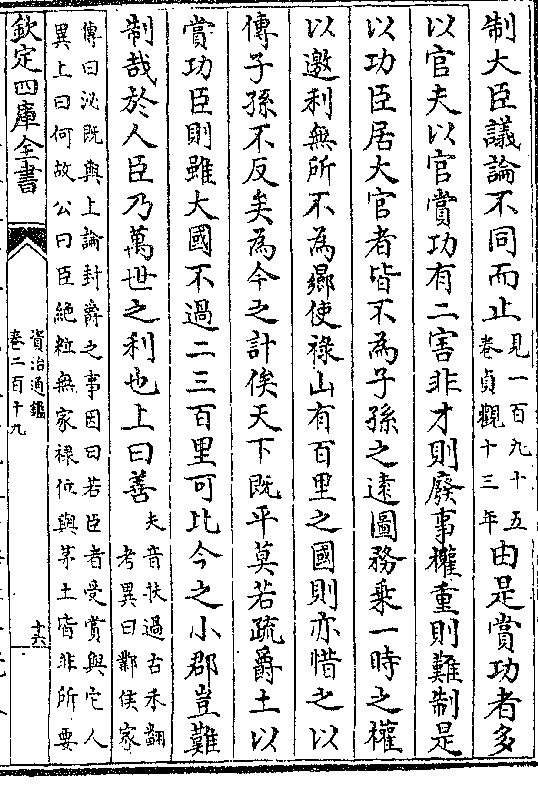 制大臣議論不同而止見一百九十五
卷貞觀十三年由是賞功者多
以官夫以官賞功有二害非才則廢事權重則難制是
以功臣居大官者皆不為子孫之遠圖務乗一時之權
以邀利無所不為曏使祿山有百里之國則亦惜之以
傳子孫不反矣為今之計俟天下既平莫若疏爵土以
賞功臣則雖大國不過二三百里可比今之小郡豈難
制哉於人臣乃萬世之利也上曰善夫音扶過古禾翻
考異曰鄴侯家
傳曰泌既與上論封爵之事因曰若臣者受賞與它人
異上曰何故公曰臣絶粒無家禄位與茅土皆非所要
欽定四庫全書
資治通鑑
卷二百十九
十六